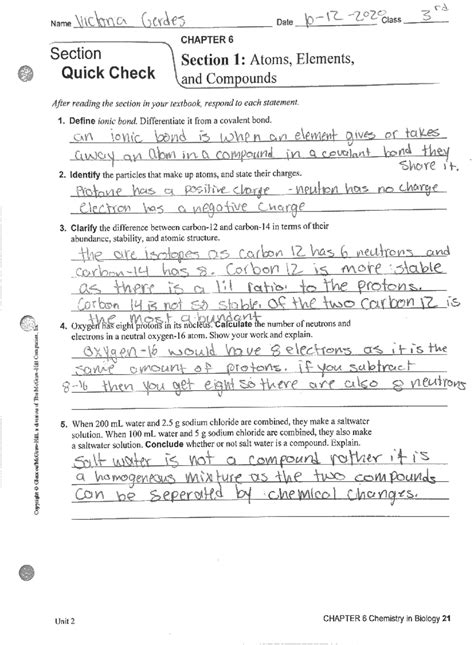 Name Victoria Gerdes Date 10-12-2020 Class 3rd
CHAPTER 6
Section
Quick Check
Section 1: Atoms, Elements,
and Compounds
After reading the section in your textbook, respond to each statement.
1. Define ionic bond. Differentiate it from a covalent bond.
an ionic bond is when an element gives or takes
away an atom in a compound in a covalant bond they
Shore it.
2. Identify the particles that make up atoms, and state their charges.
Protone has a positive charge - neutron has no charge
Electron has a negative Charge
3. Clarify the difference between carbon-12 and carbon-14 in terms of their
abundance, stability, and atomic structure.
the are isotopes as carbon 12 has 6 neutrons and
carbon-14 has 8. Carbon 12 is more stable
as there is a 1:1 ratio to the protons.
Carbon 14 is not so stable. Of the two Carbon 12 is
the most abundant
4. Oxygen has eight protons in its nucleus. Calculate the number of neutrons and
electrons in a neutral oxygen-16 atom. Show your work and explain.
Oxygen-16 would have 8 electrons as it is the
same amount of protons. if you subtract
8-16 then you get eight so there are also 8 neutrons
5. When 200 mL water and 2.5 g sodium chloride are combined, they make a saltwater
solution. When 100 mL water and 5 g sodium chloride are combined, they also make
a saltwater solution. Conclude whether or not salt water is a compound. Explain.
Salt water is not a compound rather it is
a homogeneous mixture as the two compounds
Can be seperated by chemical changes.
Copyright © Glencoe/McGraw-Hill, a division of The McGraw-Hill Companies, Inc.
Unit 2
CHAPTER 6 Chemistry in Biology 21